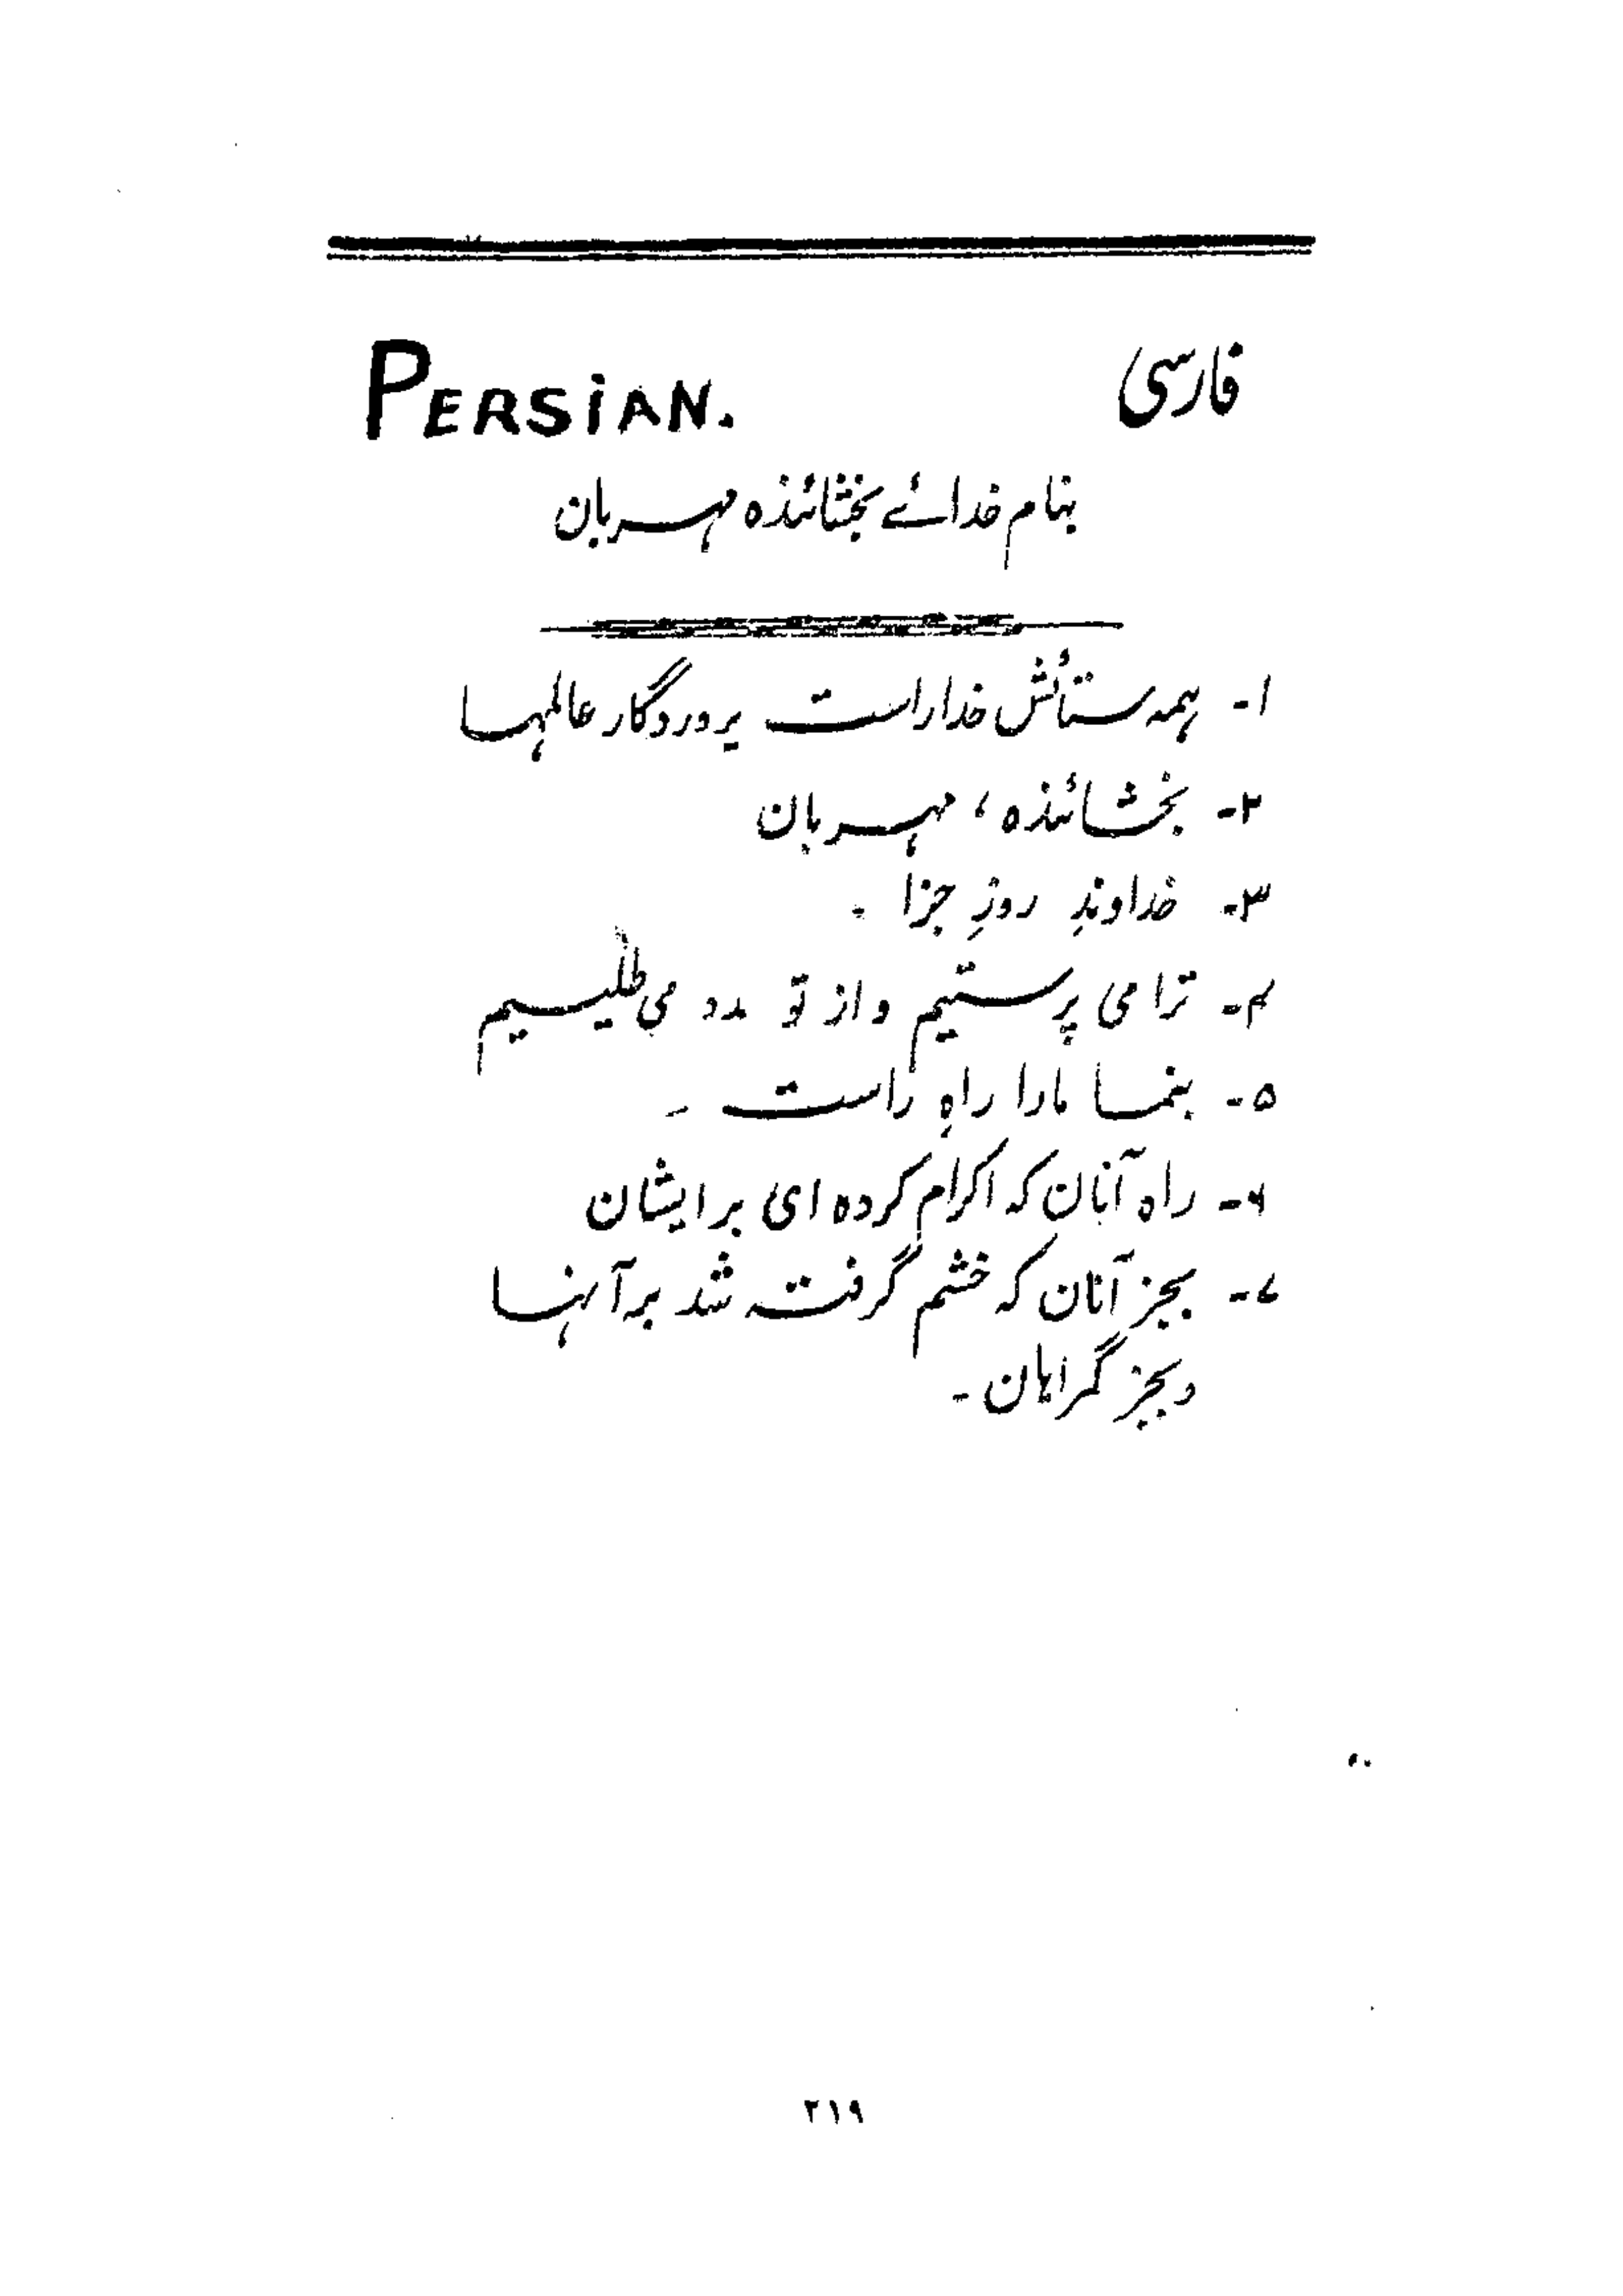 PERSIAN. فارسی
بنام خدائے بخشائندہ مہربان
۱- ہمہ ستائش خدا راست پروردگار عالمہا
۲- بخشائندہ، مہربان
۳- خداوندِ روزِ جزا -
۴- ترا می پرستیم و از تو مدد می طلبیم
۵- بنما مارا راہِ راست -
۶- راہ آنان کہ اکرام کردہ ای بر ایشان
۷- بجز آنان کہ خشم گرفتہ شد بر آنہا
و بجز گمراہان -
۲۱۹